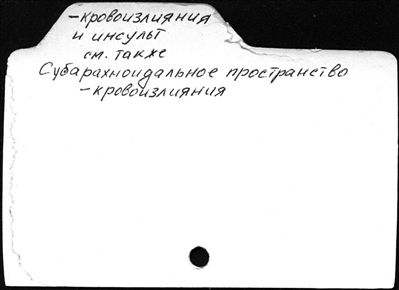 -кровоизлияния
и инсульт
см. также
Субарахноидальное пространство
-кровоизлияния